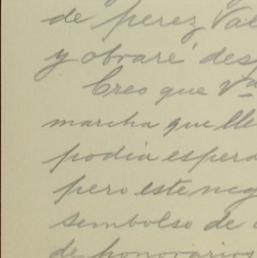 de perez Val
y obraré des
Creo que Vm
marcha que lle
podia espera
pero este neg
sembolso de
de honorarios